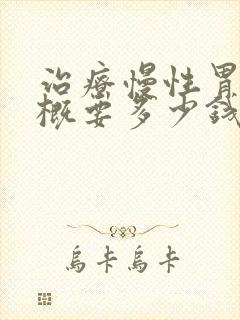 治療慢性胃
概要多少錢
烏卡烏卡